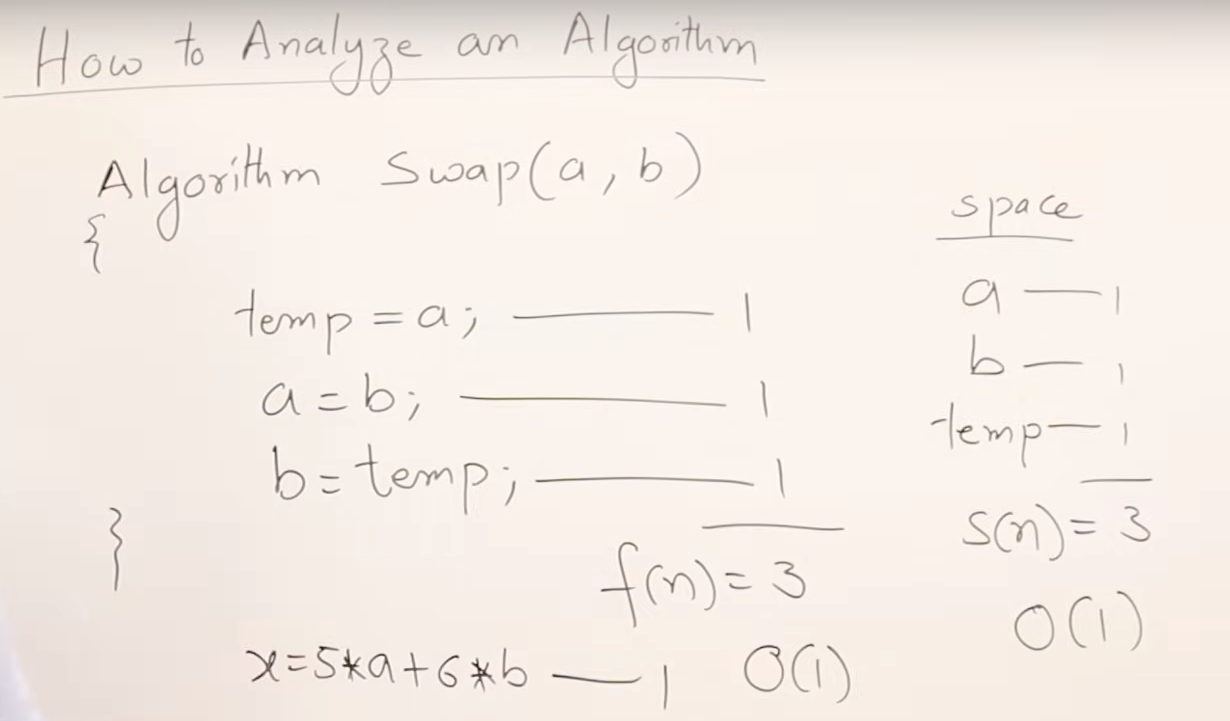 How to Analyze an Algorithm
Algorithm Swap(a, b)
{
temp = a; —— 1
a = b; —— 1
b = temp; —— 1
}
f(n) = 3
x = 5*a + 6*b —— 1 O(1)
space
a — 1
b — 1
temp — 1
S(n) = 3
O(1)